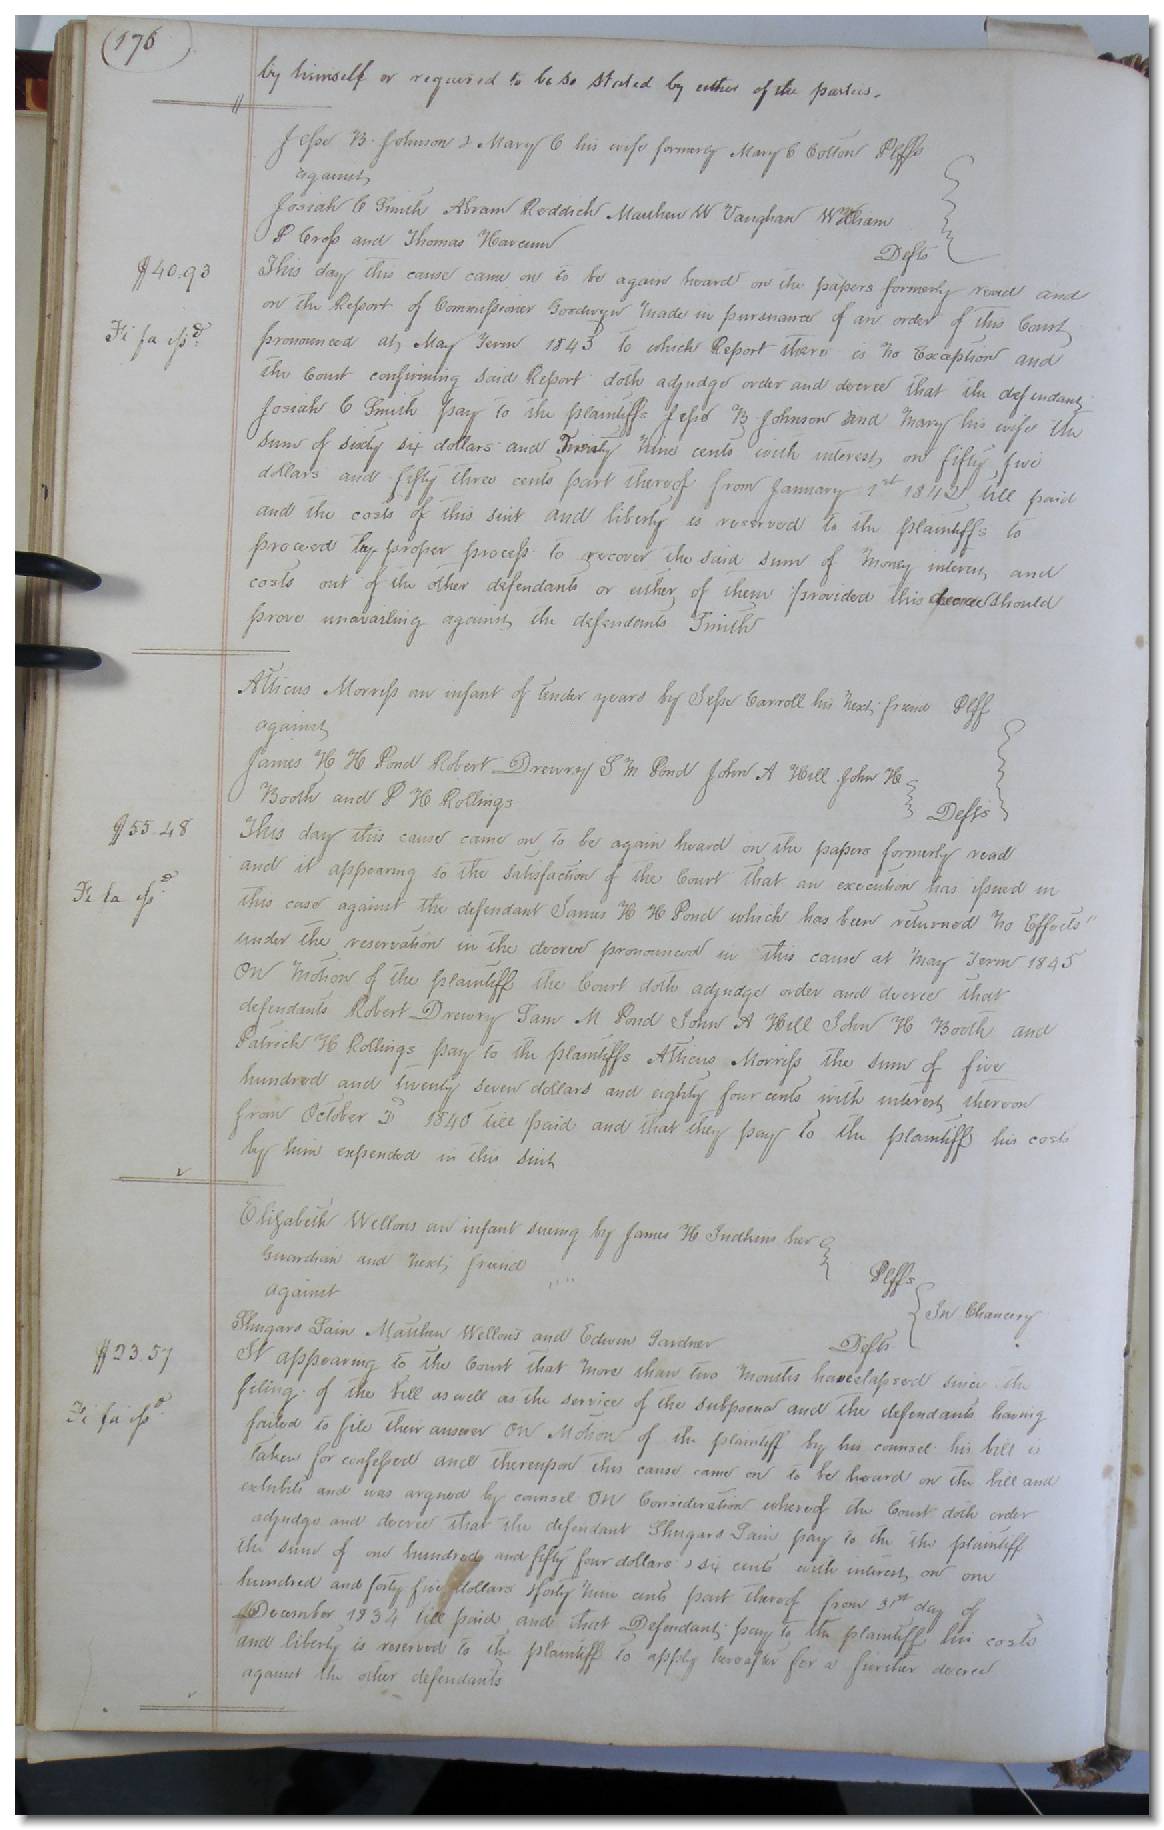 176
by himself or required to be so stated by either of the parties.
Jesse B. Johnson & Mary C his wife formerly Mary C Cotton Plffs
against
Josiah C Smith Abram Roddick Matthew W Vaughan William
P Cross and Thomas
Defts
$40.93
This day this cause came on to be again heard on the papers formerly read and
on the Report of Commissioner Goodwyn made in pursuance of an order of this Court
Fi fa issd
pronounced at May Term 1843 to which Report there is no Exception and
the Court confirming said Report doth adjudge order and decree that the defendant
Josiah C Smith pay to the plaintiffs Jesse B Johnson and Mary his wife the
sum of sixty six dollars and Twenty Nine cents with interest on fifty five
dollars and fifty three cents part thereof from January 1st 1842 till paid
and the costs of this suit and liberty is reserved to the plaintiffs to
proceed by proper process to recover the said sum of money interest and
costs out of the other defendants or either of them provided this decree should
prove unavailing against the defendants Smith
Atticus Morriss an infant of tender years by Jesse Carroll his next friend Plff
against
James H H Pond Robert Drewry S M Pond John A Hill John H
Booth and P H Rollings
Defts
$55.48
This day this cause came on to be again heard on the papers formerly read
and it appearing to the satisfaction of the Court that an execution has issued in
Fi fa issd
this case against the defendant James H H Pond which has been returned "No Effects"
under the reservation in the decree pronounced in this cause at May Term 1845
On Motion of the plaintiff the Court doth adjudge order and decree that
defendants Robert Drewry Sam M Pond John A Hill John H Booth and
Patrick H Rollings pay to the plaintiffs Atticus Morriss the sum of five
hundred and twenty seven dollars and eighty four cents with interest thereon
from October 1840 till paid and that they pay to the plaintiff his costs
by him expended in this suit
Elizabeth Wellons an infant sueing by James H Judkins her
Guardian and next friend
Plffs
against
In Chancery
Shugars Lain Matthew Wellons and Edwin Gardner
Defts
$23.57
It appearing to the Court that more than two months have elapsed since the
filing of the bill as well as the service of the subpoena and the defendants having
Fi fa issd
failed to file their answer On Motion of the plaintiff by his counsel his bill is
taken for confessed and thereupon this cause came on to be heard on the bill and
exhibits and was argued by counsel On Consideration whereof the Court doth order
adjudge and decree that the defendant Shugars Lain pay to the the plaintiff
the sum of one hundred and fifty four dollars & six cents with interest on one
hundred and forty five dollars & forty nine cents part thereof from 31st day of
December 1834 till paid and that Defendant pay to the plaintiff his costs
and liberty is reserved to the plaintiff to apply hereafter for a further decree
against the other defendants